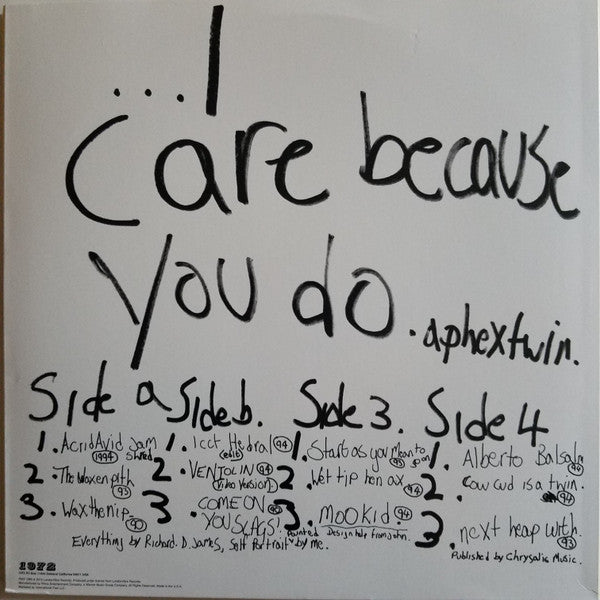 ...I
Care because
you do.
.aphextwin.
Side a
1. AcridAvid Jam
Shred
1994
2. The Waxen pith
93
3. Wax the Nip
90
Side b.
1. Icct Hedral 94
(edit)
2. VENTOLIN 94
(Video Version)
3. COME ON
YOU SLAGS!
Side 3.
1. Start as you Mean to
go on
93
2. Wet tip hen ax 94
3. MOOKid. 94
Design help from john.
Side 4
1. Alberto Balsalm
94
2. Cow cud is a twin.
94
3. next heap with.
93
Everything by Richard. D. James, Self Portrait painted by me.
Published by Chrysalis Music.
1972